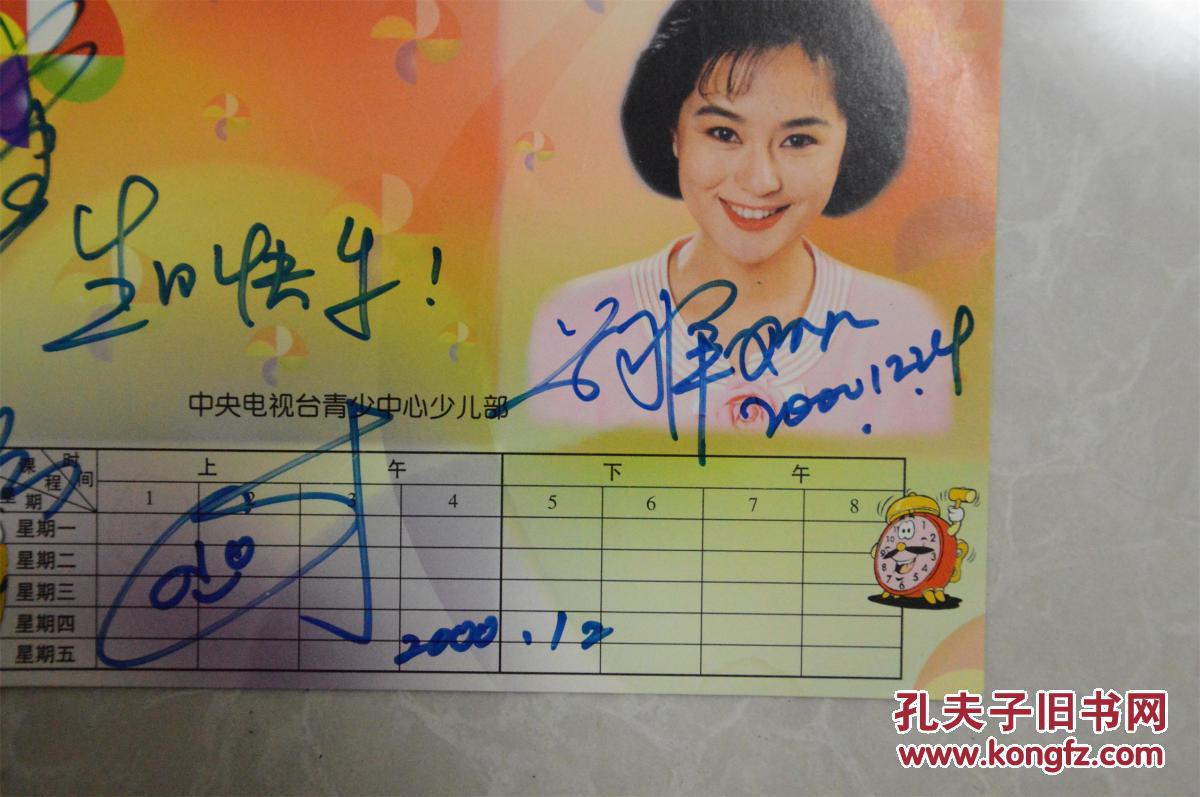 生日快乐!
2000.12.24
中央电视台青少中心少儿部
课程 时间 星期 上 午 下 午
1 2 3 4 5 6 7 8
星期一
星期二
星期三
星期四
星期五
2000.12
孔夫子旧书网
www.kongfz.com